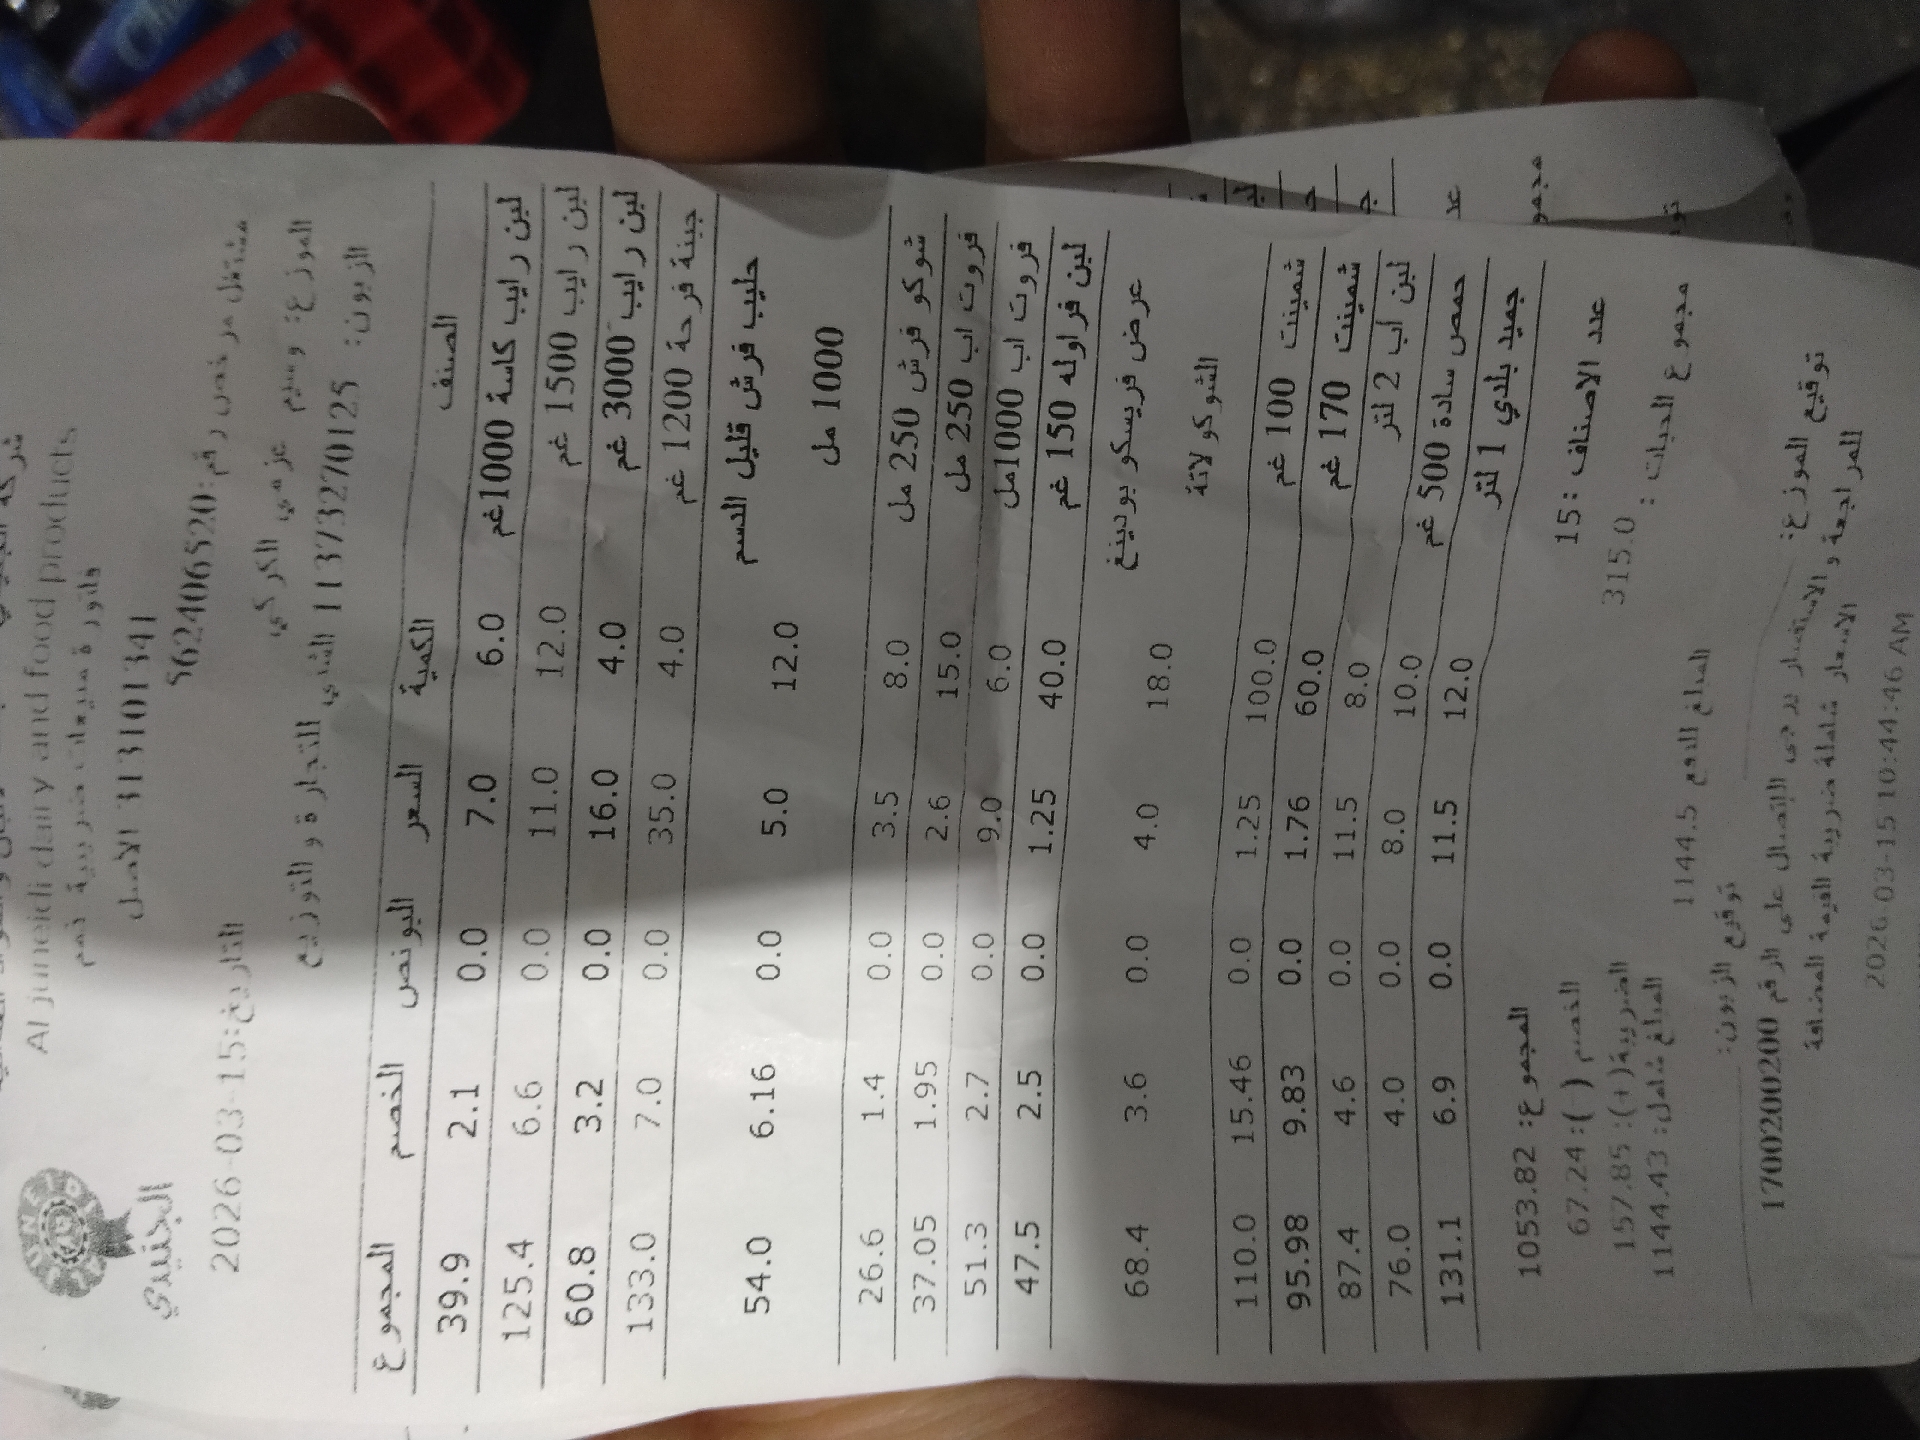 Al juneidi dairy and food products
فاتورة مبيعات ضريبية نعم
313101341 الاصل
الجنيدي
مشتغل مرخص رقم: 562406520
التاريخ: 2026-03-15
الموزع: وسيم عزمي الكركي
الزبون: 1137327012 الشني للتجارة والتوزيع
الصنف الكمية السعر البونص الخصم المجموع
لبن رايب كاسة 1000غم 6.0 7.0 0.0 2.1 39.9
لبن رايب 1500 غم 12.0 11.0 0.0 6.6 125.4
لبن رايب 3000 غم 4.0 16.0 0.0 3.2 60.8
جبنة فرحة 1200 غم 4.0 35.0 0.0 7.0 133.0
حليب فرش قليل الدسم 12.0 5.0 0.0 6.16 54.0
1000 مل
شوكو فرش 250 مل 8.0 3.5 0.0 1.4 26.6
فروت اب 250 مل 15.0 2.6 0.0 1.95 37.05
فروت اب 1000مل 6.0 9.0 0.0 2.7 51.3
لبن فراوله 150 غم 40.0 1.25 0.0 2.5 47.5
عرض فريسكو بودينغ 18.0 4.0 0.0 3.6 68.4
الشوكولاتة
شمينت 100 غم 100.0 1.25 0.0 15.46 110.0
شمينت 170 غم 60.0 1.76 0.0 9.83 95.98
لبن اب 2 لتر 8.0 11.5 0.0 4.6 87.4
حمص سادة 500 غم 10.0 8.0 0.0 4.0 76.0
جميد بلدي 1 لتر 12.0 11.5 0.0 6.9 131.1
عدد الاصناف: 15 المجموع: 1053.82
مجموع الحبات: 315.0 الخصم (-): 67.24
الضريبة(+): 157.85
المبلغ شامل: 1144.43
المبلغ للدفع 1144.5
توقيع الموزع: توقيع الزبون:
المراجعة والاستفسار يرجى الاتصال على الرقم 1700200200
الاسعار شاملة ضريبة القيمة المضافة
2026-03-15 10:44:46 AM